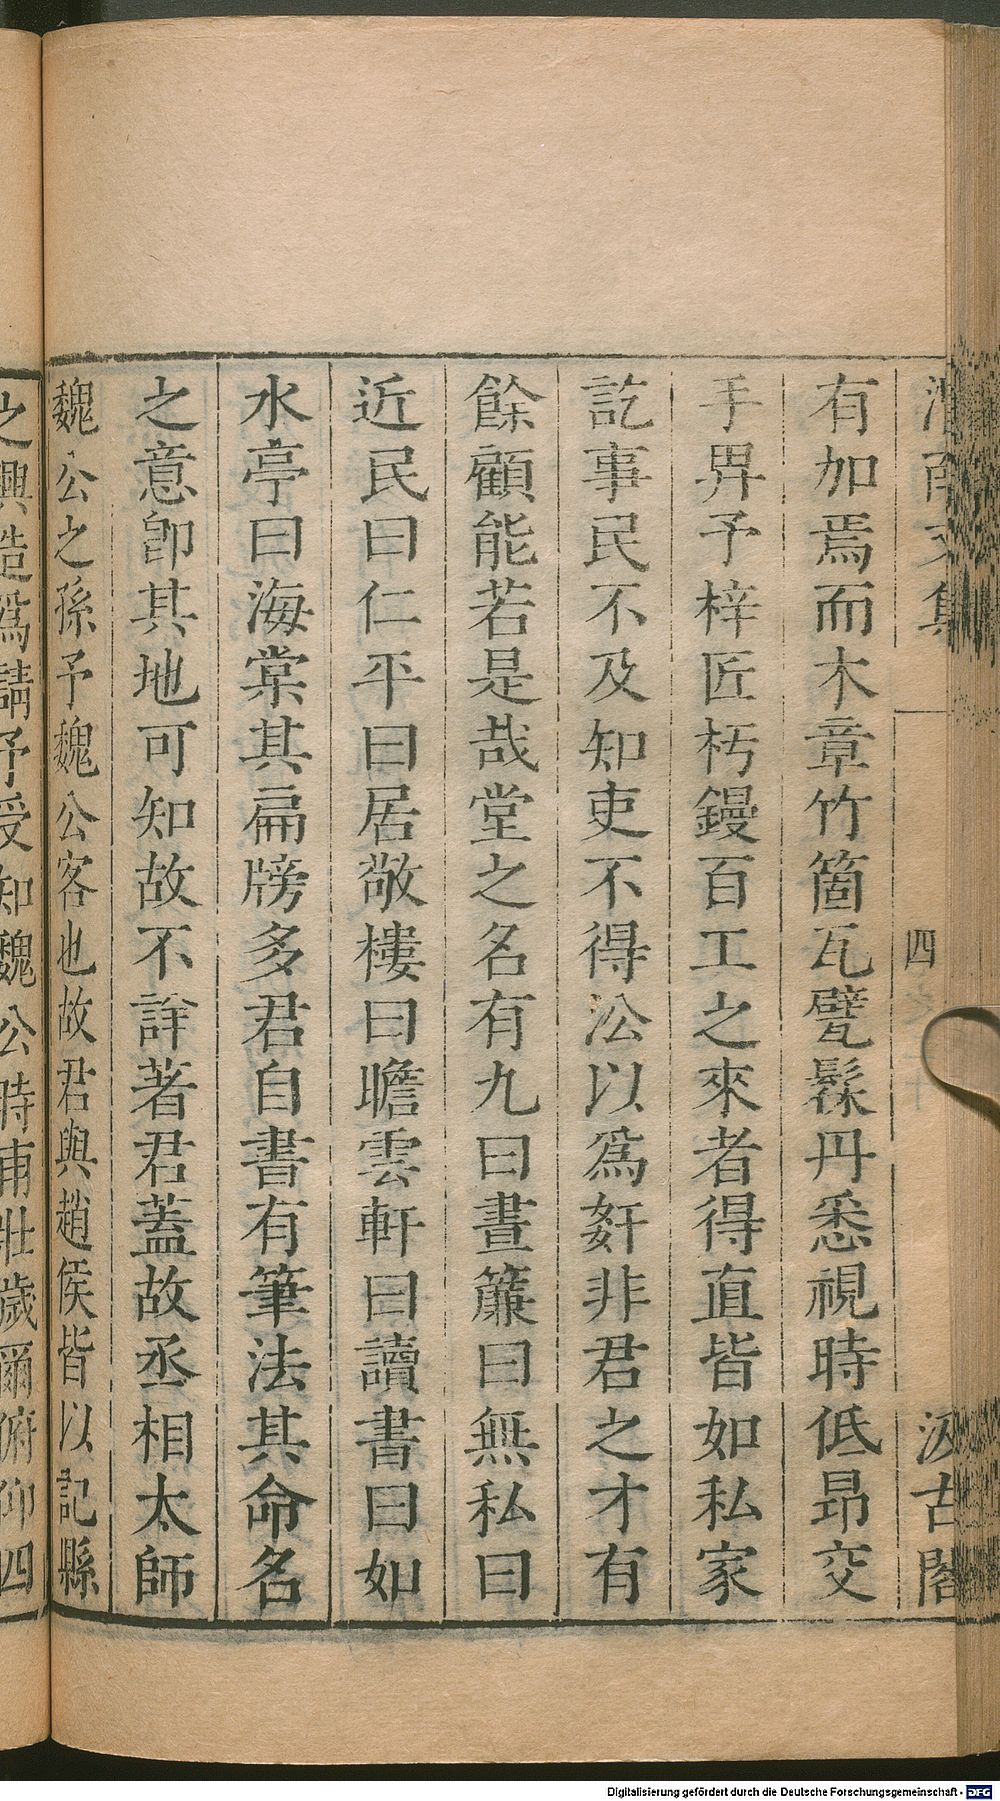 渭南文集
四
汲古閣
有加焉而木章竹箇瓦甓髹丹悉視時低昻交
手畀予梓匠杇鏝百工之來者得直皆如私家
訖事民不及知吏不得訟以爲奸非君之才有
餘顧能若是哉堂之名有九曰晝簾曰無私曰
近民曰仁平曰居敬樓曰瞻雲軒曰讀書曰如
水亭曰海棠其扁牓多君自書有筆法其命名
之意卽其地可知故不詳著君蓋故丞相太師
魏公之孫予魏公客也故君與趙侯皆以記縣
之興造爲請予受知魏公時甫壯歲爾俯仰四
Digitalisierung gefördert durch die Deutsche Forschungsgemeinschaft - DFG